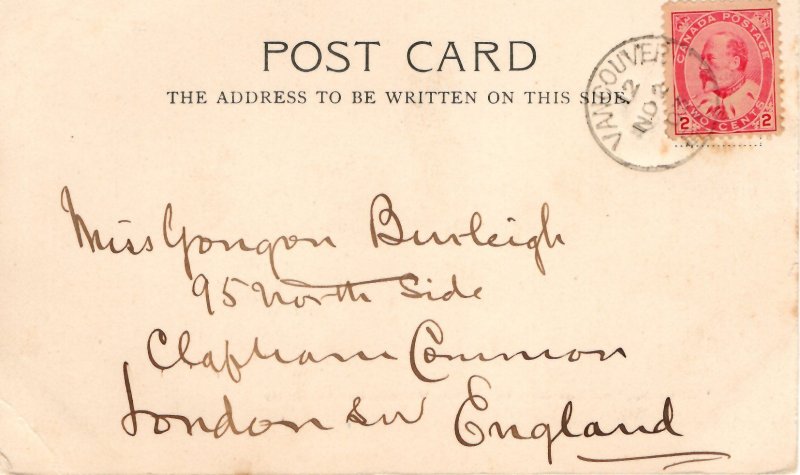 POST CARD
THE ADDRESS TO BE WRITTEN ON THIS SIDE.
CANADA POSTAGE
2 TWO CENTS 2
VANCOUVER
12
NO 2
Miss Burleigh
95 North Side
Clapham Common
London SW England